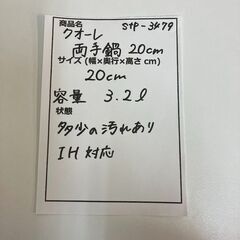 商品名
stp-3479
クオーレ
両手鍋 20cm
サイズ (幅×奥行×高さ cm)
20cm
容量 3.2ℓ
状態
多少の汚れあり
IH対応